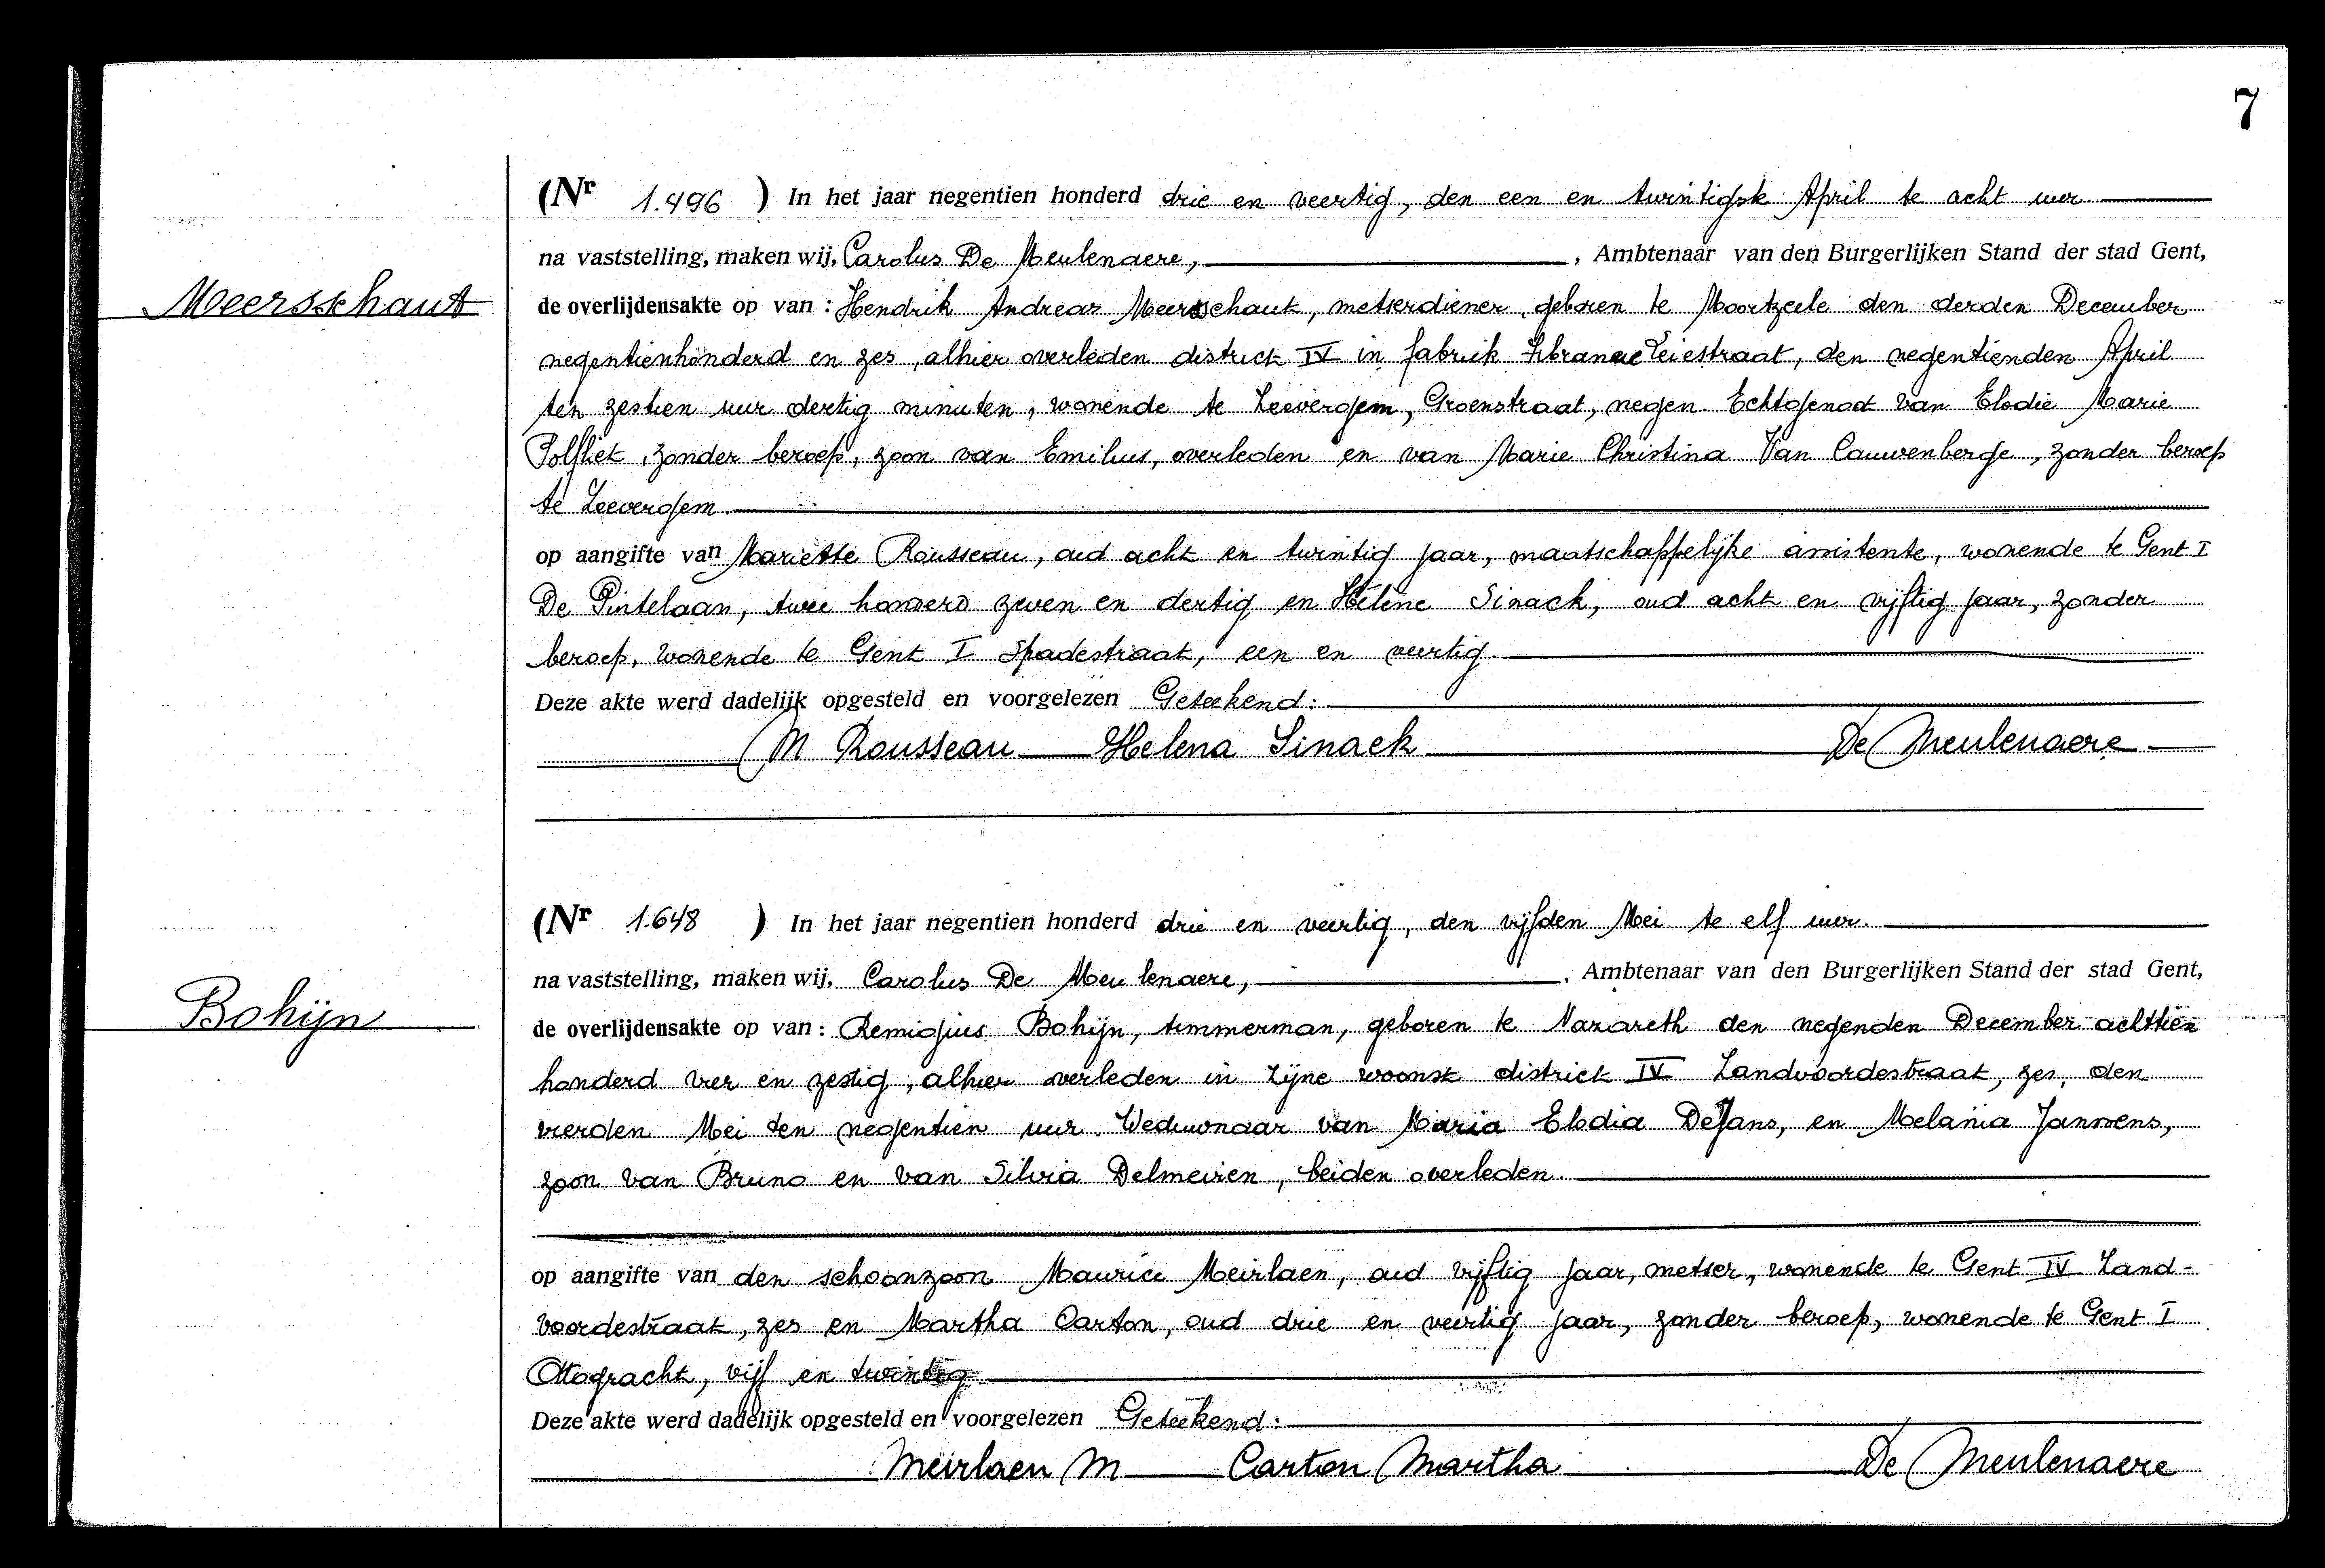 7
(Nr 1.496 ) In het jaar negentien honderd drie en veertig, den een en twintigste April te acht uur
na vaststelling, maken wij, Carolus De Meulenaere, , Ambtenaar van den Burgerlijken Stand der stad Gent,
Meersschaut
de overlijdensakte op van : Hendrik Andreas Meersschaut, metserdiener, geboren te Moortzeele den derden December
negentienhonderd en zes, alhier overleden district IV in fabriek Leiestraat, den negentienden April
ten zestien uur dertig minuten, wonende te Leevergem, Groenstraat, negen. Echtgenoot van Elodie Marie
Polfliet, zonder beroep, zoon van Emilius, overleden en van Marie Christina Van Cauwenberge, zonder beroep
te Leevergem
op aangifte van Mariette Rousseau, oud acht en twintig jaar, maatschappelijke assistente, wonende te Gent I
De Pintelaan, twee honderd zeven en dertig en Hélène Sinack, oud acht en vijftig jaar, zonder
beroep, wonende te Gent I Spadestraat, een en veertig.
Deze akte werd dadelijk opgesteld en voorgelezen Geteekend:
M Rousseau Helena Sinaek De Meulenaere
(Nr 1.648 ) In het jaar negentien honderd drie en veertig, den vijfden Mei te elf uur.
na vaststelling, maken wij, Carolus De Meulenaere, , Ambtenaar van den Burgerlijken Stand der stad Gent,
Bohijn
de overlijdensakte op van : Remigius Bohijn, timmerman, geboren te Nazareth den negenden December achttien
honderd vier en zestig, alhier overleden in zijne woonst district IV Landvoordestraat, zes, den
vierden Mei ten negentien uur. Weduwnaar van Maria Elodia DeJans, en Melania Janssens,
zoon van Bruno en van Silvia Delmeiren, beiden overleden.
op aangifte van den schoonzoon Maurice Meirlaen, oud vijftig jaar, metser, wonende te Gent IV Land-
voordestraat, zes en Martha Carton, oud drie en veertig jaar, zonder beroep, wonende te Gent I
Ottogracht, vijf en twintig
Deze akte werd dadelijk opgesteld en voorgelezen Geteekend:
Meirlaen M Carton Martha De Meulenaere